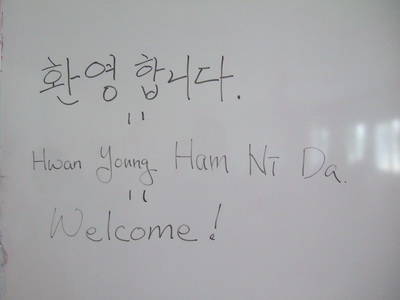 환영합니다.
=
Hwan Young Ham Ni Da.
=
Welcome!